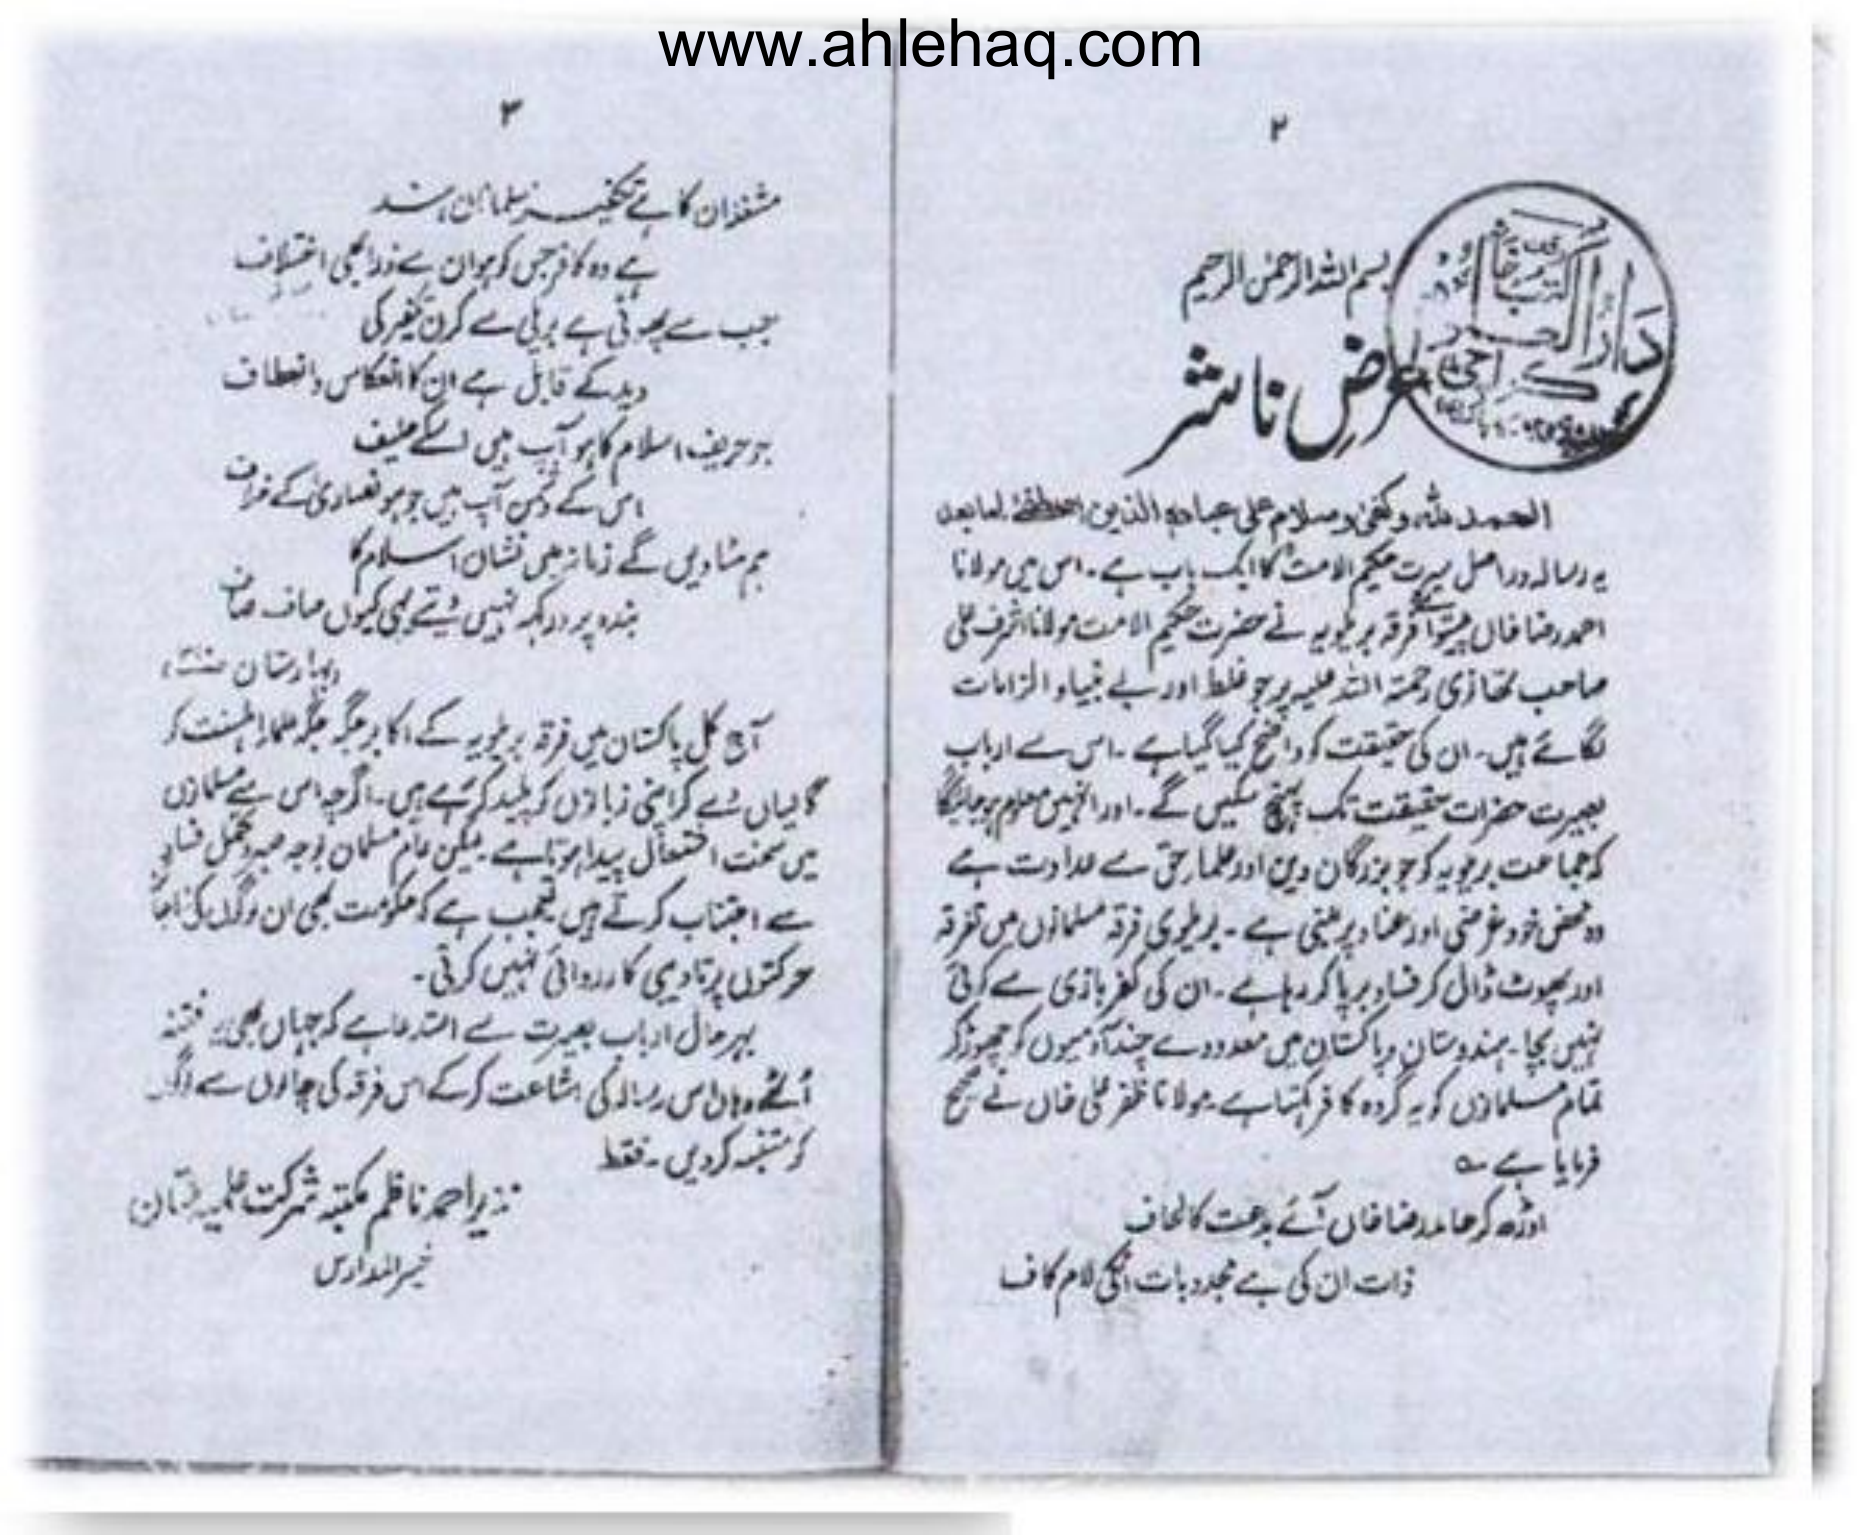 www.ahlehaq.com
۲
بسم اللہ الرحمٰن الرحیم
عرضِ ناشر
الحمد للہ وکفیٰ وسلام علی عبادہ الذین اصطفیٰ امابعد
یہ رسالہ دراصل سیرت حکیم الامت کا ایک باب ہے۔ اس میں مولانا
احمد رضا خاں پیشوا فرقہ بریلویہ نے حضرت حکیم الامت مولانا اشرف علی
صاحب تھانوی رحمتہ اللہ علیہ پر جو غلط اور بے بنیاد الزامات
لگائے ہیں۔ ان کی حقیقت کو واضح کیا گیا ہے۔ اس سے ارباب
بصیرت حضرات حقیقت تک پہنچ سکیں گے۔ اور انہیں معلوم ہو جائیگا
کہ جماعت بریلویہ کو جو بزرگان دین اور علمار حق سے عداوت ہے
وہ محض خود غرضی اور عناد پر مبنی ہے۔ بریلوی فرقہ مسلمانوں میں تفرقہ
اور پھوٹ ڈال کر فساد برپا کر رہا ہے۔ ان کی کفر بازی سے کوئی
نہیں بچا۔ ہندوستان و پاکستان میں معدودے چند آدمیوں کو چھوڑ کر
تمام مسلمانوں کو یہ گروہ کافر کہتا ہے۔ مولانا ظفر علی خاں نے صحیح
فرمایا ہے ؎
اوڑھ کر حامد رضا خاں آئے بدعت کا لحاف
ذات ان کی ہے مجدد بات انکی لام کاف
۳
مشغلہ ان کا ہے تکفیر مسلمانان ہند
ہے وہ کافر جس کو ہو ان سے ذرا بھی اختلاف
جب سے پھوٹی ہے بریلی سے کرن تکفیر کی
دید کے قابل ہے ان کا انعکاس و انعطاف
جو حریف اسلام کا ہو آپ ہیں اسکے حلیف
اس کے دشمن آپ ہیں جو ہو نصاریٰ کے خلاف
ہم مٹا دیں گے زمانہ میں نشان اسلام کا
بندہ پرور کہہ نہیں دیتے بھی کیوں صاف صاف
(بہارستان
آج کل پاکستان میں فرقہ بریلویہ کے اکابر جگہ جگہ علمار اہلسنت کو
گالیاں دے کر اپنی زبانوں کو پلید کر رہے ہیں۔ اگرچہ اس سے مسلمانوں
میں سخت اشتعال پیدا ہوتا ہے لیکن عام مسلمان بوجہ صبر و تحمل فساد
سے اجتناب کرتے ہیں تعجب ہے کہ حکومت بھی ان لوگوں کی
حرکتوں پر تادیبی کارروائی نہیں کرتی۔
بہر حال ارباب بصیرت سے استدعا ہے کہ جہاں بھی یہ فتنہ
اُٹھے وہاں اس رسالہ کی اشاعت کر کے اس فرقہ کی چالوں سے
کو متنبہ کر دیں۔ فقط
نذیر احمد ناظم مکتبہ شرکت علمیہ ملتان
خیر المدارس